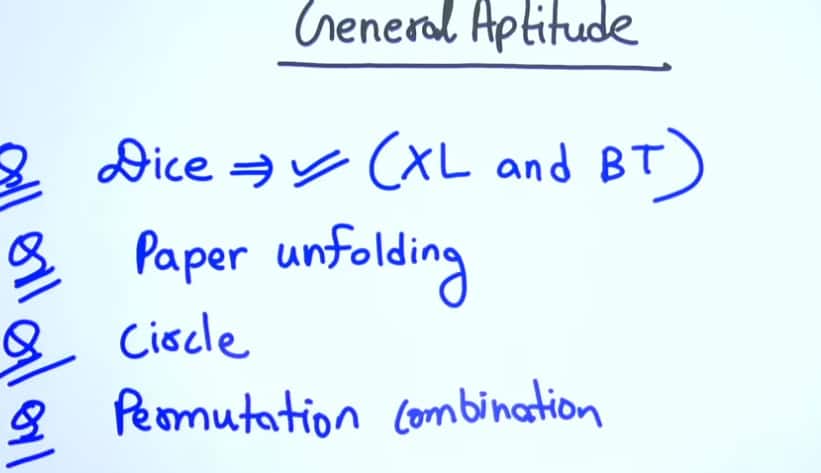 General Aptitude
Q Dice ⇒ ✓ (XL and BT)
Q Paper unfolding
Q Circle
Q Permutation Combination